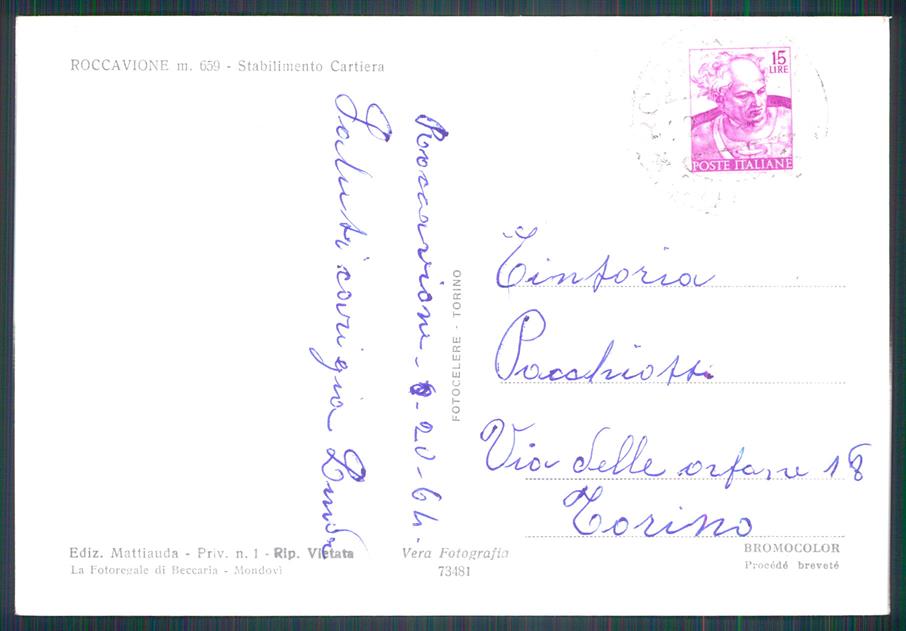 ROCCAVIONE m. 659 - Stabilimento Cartiera
15
LIRE
POSTE ITALIANE
Roccavione - 8-20-64.
Saluti cari
FOTOCELERE - TORINO
Tintoria
Pacchiotti
Via delle orfane 18
Torino
Ediz. Mattiauda - Priv. n. 1 - Rip. Vietata
La Fotoregale di Beccaria - Mondovì
Vera Fotografia
73481
BROMOCOLOR
Procédé breveté